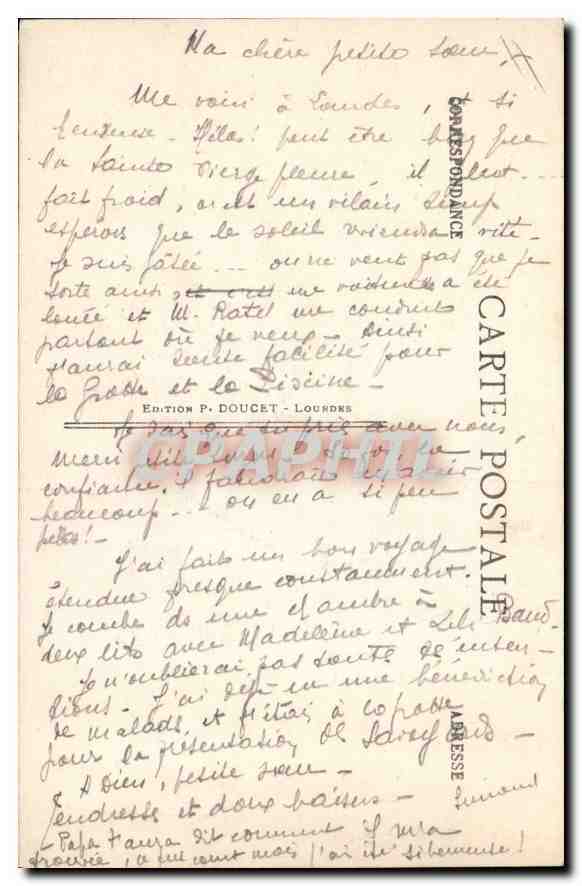 Ma chère petite sœur,
Me voici à Lourdes, et si
heureuse - Hélas! peut être bien que
la Sainte Vierge pleure, il pleut...
fait froid, un vilain temps
espérons que le soleil viendra vite -
Je suis gâtée ... on ne veut pas que je
sorte ainsi une voiture a été
louée et M. Ratel me conduit
partout où je veux - Ainsi
j'aurai toute facilité pour
la Grotte et la Piscine -
EDITION P. DOUCET - LOURDES
Je sais que tu pries avec nous,
merci petite
confiante, il faudrait
beaucoup ... on en a si peu
hélas! -
J'ai fait un bon voyage
étendue presque constamment.
Je couche ds une chambre à
deux lits avec Madeleine et Lili
Je n'oublierai pas toutes tes inten-
tions - J'ai déjà eu une bénédiction
de malades, et j'étais à la grotte
pour la présentation des Savoyards -
A Dieu, petite sœur -
Tendresses et doux baisers -
Papa t'aura dit comment il m'a
trouvée, j'ai été si heureuse!
CORRESPONDANCE
CARTE POSTALE
ADRESSE
CPAPHIL